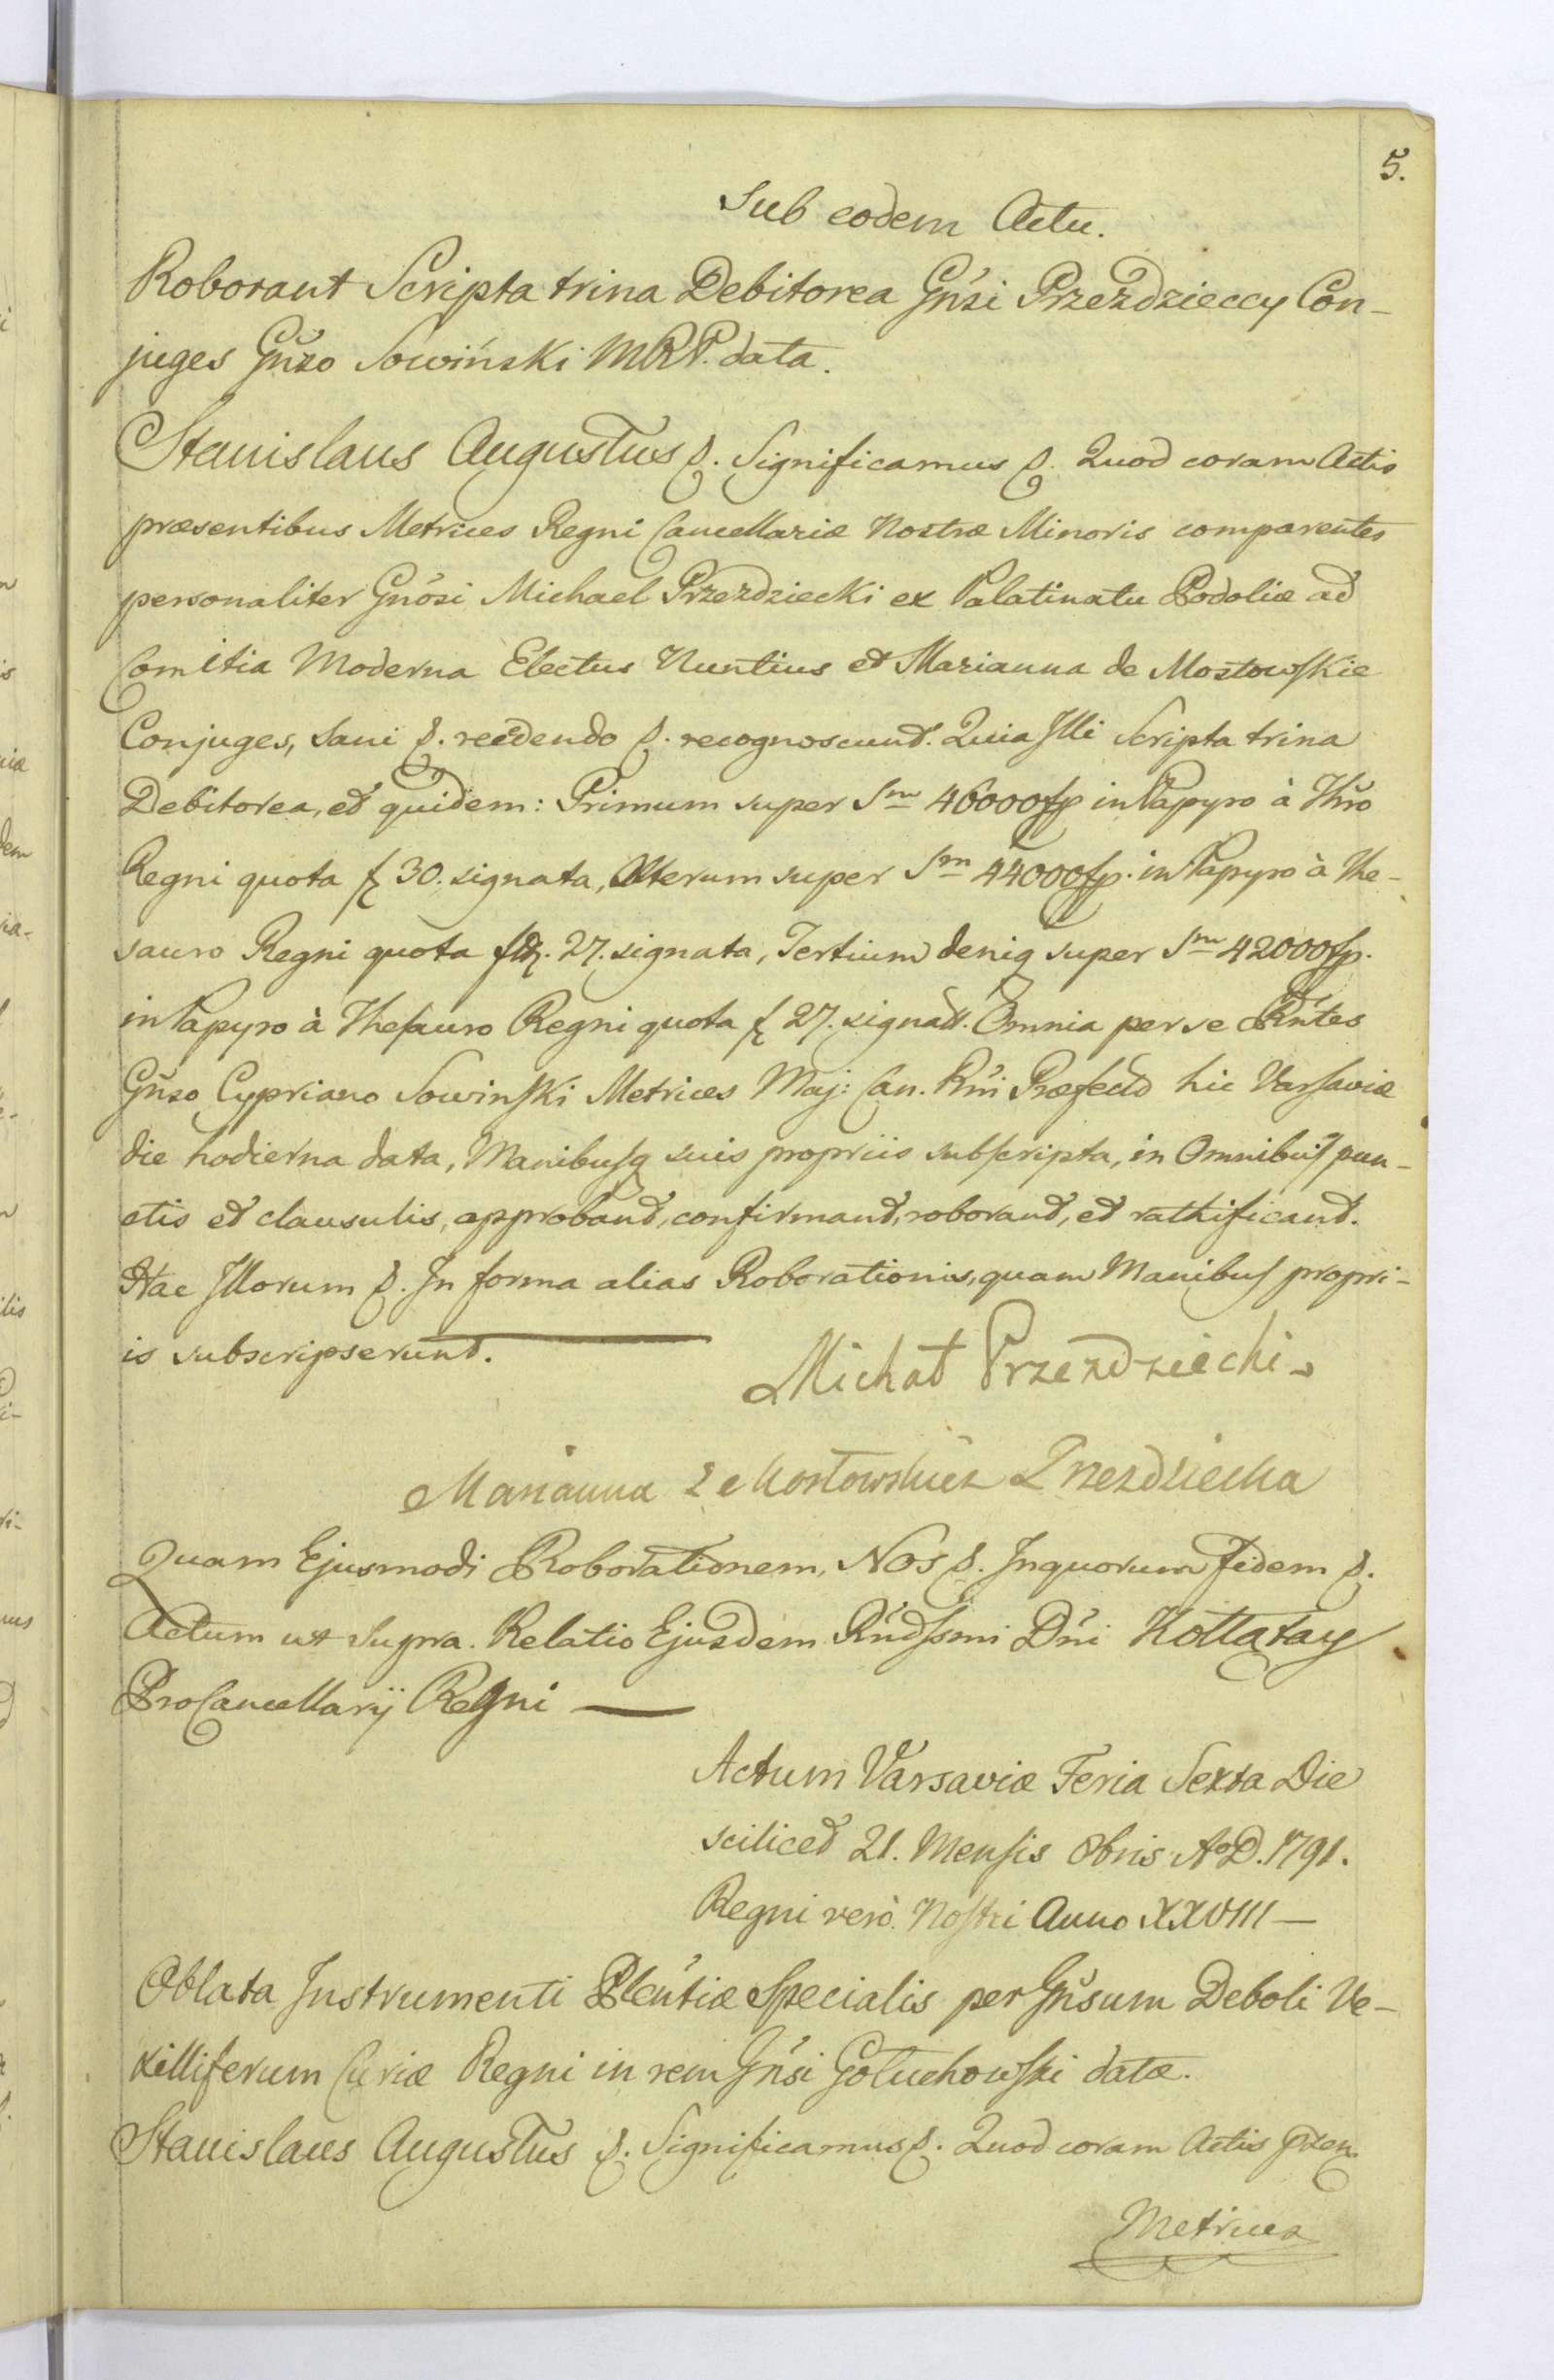 5.
Sub eodem Actu.
Roborant Scripta trina Debitorea Gńsi Przezdzieccy Con-
juges Gńso Sowiński MRP. data.
Stanislaus Augustus p. Significamus p. Quod coram Actis
præsentibus Metrices Regni Cancellariæ Nostræ Minoris comparentes
personaliter Gnósi Michael Przezdziecki ex Palatinatu Podoliæ ad
Comitia Moderna Electus Nuntius et Marianna de Mostowskie
Conjuges, sani p. recedendo p. recognoscunt. Quia Illi Scripta trina
Debitorea, et quidem: Primum super Sm̄ 46000fp in Papyro à Thŕo
Regni quota f 30. signata, Alterum super Sm̄ 44000fp. in Papyro à The-
sauro Regni quota 27. signata, Tertium deniq super Sm̄ 42000fp.
in Papyro à Thesauro Regni quota f 27. signatt. Omnia per se Rńtes
Gńso Cypriano Sowinski Metrices Maj: Can. Rńi Præfecto hic Varsaviæ
die hodierna data, Manibusq suis propriis subscripta, in Omnibus pun-
ctis et clausulis, approbant, confirmant, roborant, et rathificant.
Hac Illorum p. In forma alias Roborationis, quam Manibus propri-
is subscripserunt.
Michał Przezdziecki
Marianna z Mostowskich Przezdziecka
Quam Ejusmodi Roborationem, Nos p. In quorum fidem p.
Actum ut supra. Relatio Ejusdem Rńdssmi Dńi Kołłątay
ProCancellarij Regni
Actum Varsaviæ Feria Sexta Die
scilicet 21. Mensis 8bris A°D. 1791.
Regni verò Nostri Anno XXVIII
Oblata Instrumenti Pleńtiæ Specialis per Gńsum Deboli Ve-
xilliferum Curiæ Regni in rem Gńsi Gołuchowski datæ.
Stanislaus Augustus p. Significamus p. Quod coram Actis przen
Metrices